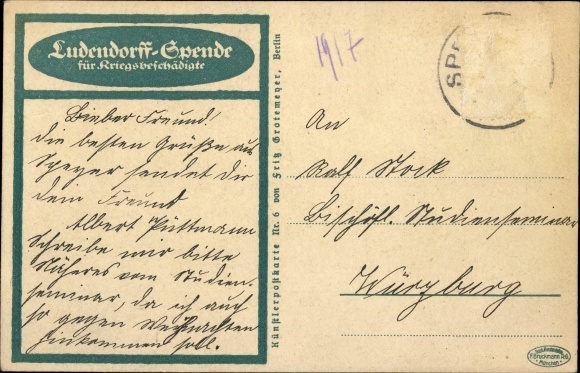 Ludendorff-Spende
für Kriegsbeschädigte
Lieber Freund!
die besten Grüße aus
Speyer sendet dir
dein Freund
Albert Püttmann
Schreibe mir bitte
Näheres vom Studien-
seminar, da ich auch
so gegen Weihnachten
hinkommen soll.
Künstlerpostkarte Nr. 6 von Fritz Grotemeyer, Berlin
1917
SP
An
Ralf Stock
Bischöfl. Studienseminar
Würzburg
F. Bruckmann A.G.
München